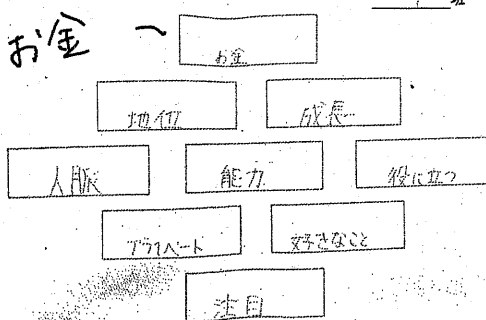 班
お金 〜
お金
地位 成長
人脈 能力 役に立つ
プライベート 好きなこと
注目